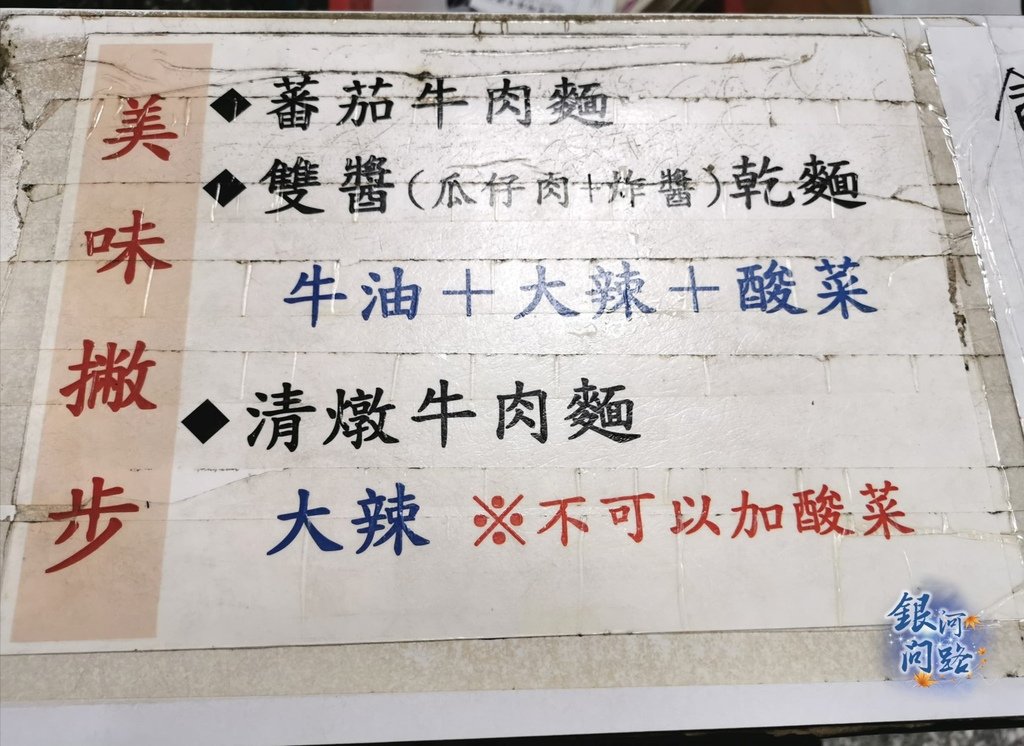 美味撇步
◆蕃茄牛肉麵
◆雙醬(瓜仔肉+炸醬)乾麵
牛油＋大辣＋酸菜
◆清燉牛肉麵
大辣 ※不可以加酸菜
銀河
問路